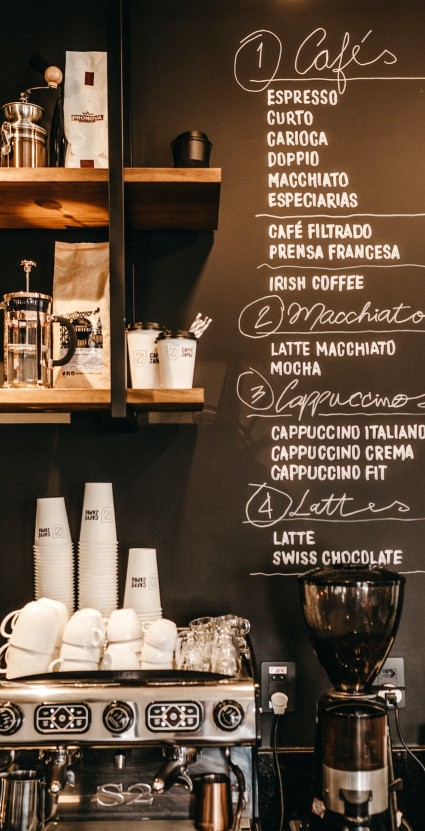 1 Cafés
ESPRESSO
CURTO
CARIOCA
DOPPIO
MACCHIATO
ESPECIARIAS
CAFÉ FILTRADO
PRENSA FRANCESA
IRISH COFFEE
2 Macchiato
LATTE MACCHIATO
MOCHA
3 Cappuccinos
CAPPUCCINO ITALIANO
CAPPUCCINO CREMA
CAPPUCCINO FIT
4 Lattes
LATTE
SWISS CHOCOLATE
PRONOVA
CAFFÈ
ZAPPA
CAFFÈ
ZAPPA
CAFFÈ
ZAPPA
CAFFÈ
ZAPPA
S2